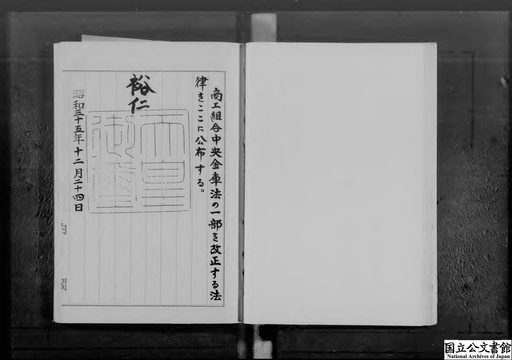 商工組合中央金庫法の一部を改正する法
律をここに公布する。
裕仁
天皇
御璽
昭和三十五年十二月二十四日
国立公文書館
National Archives of Japan